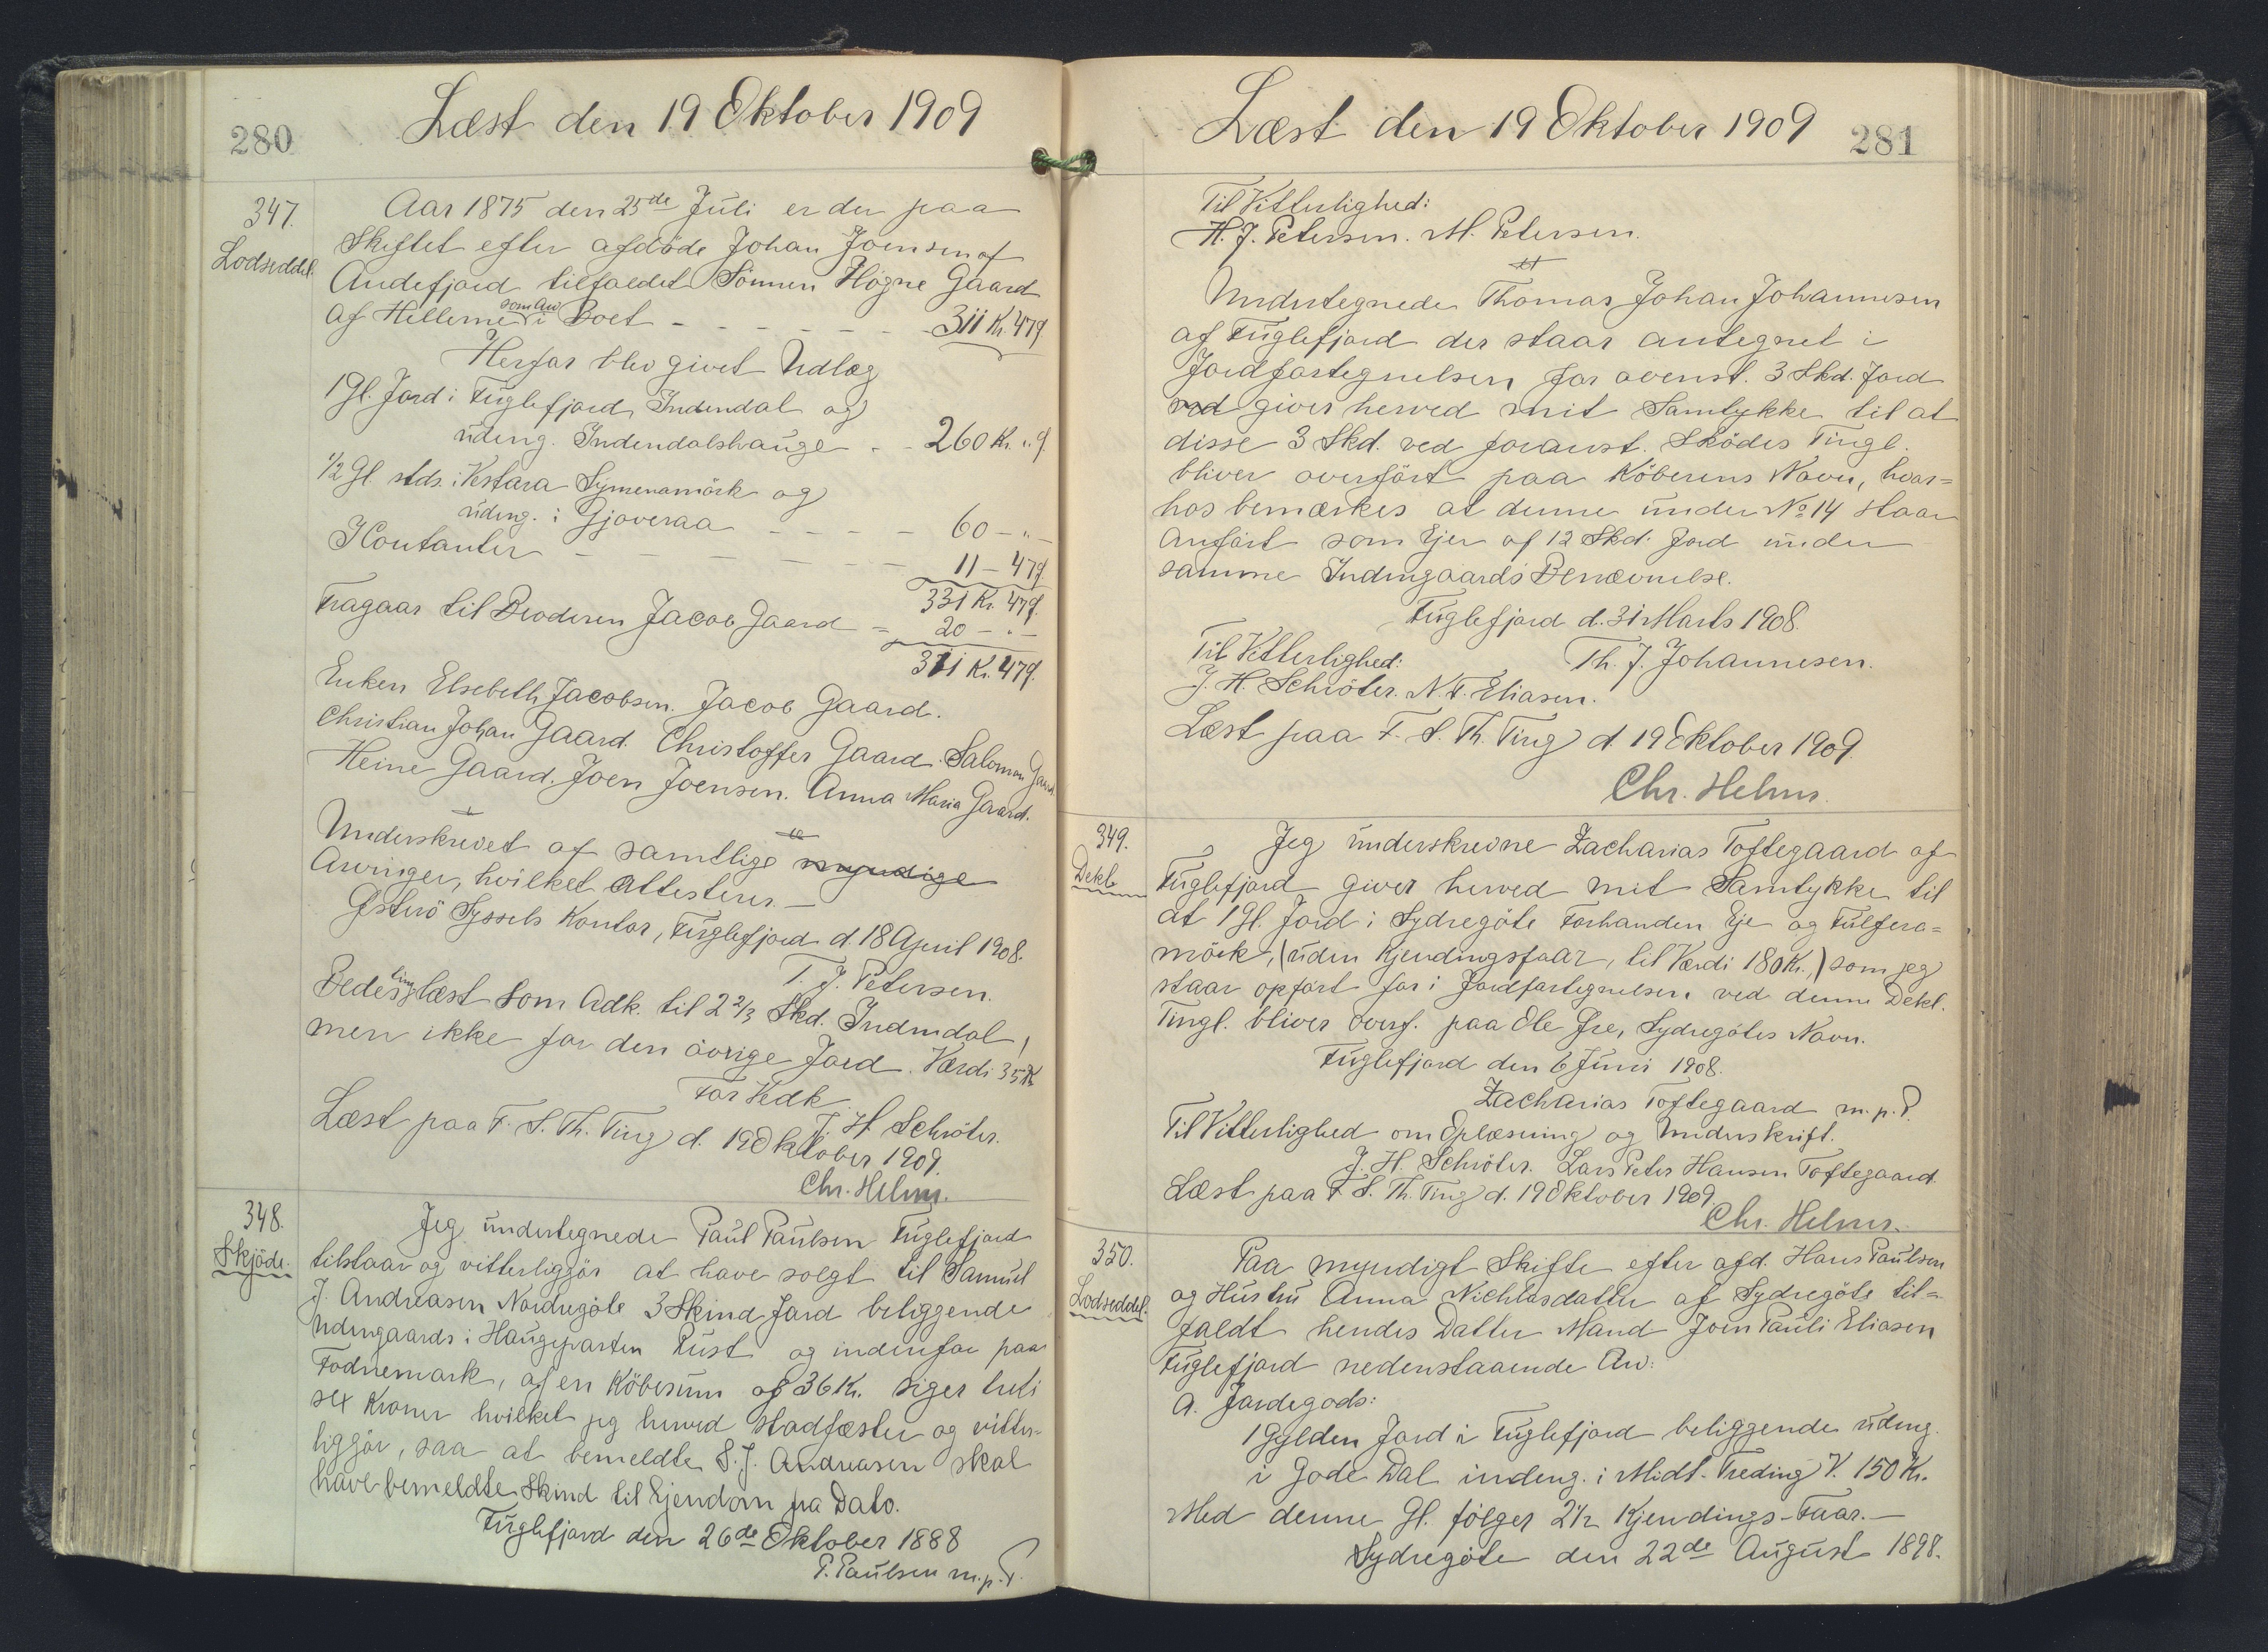 280
Læst den 19 Oktober 1909
347.
Lodseddel.
Aar 1875 den 25de Juli er der paa
Skiftet efter afdöde Johan Joensen af
Andefjord tilfaldet Sönnen Högne Gaard
af Hellerne som Arv i Boet - - - - - - - 311 Kr. 47 q.
Herfor blev givet Udlæg
1 Gl. Jord i Fuglefjord, Indendal og
udeng. Indendalshauge - - 260 Kr. " q.
1/2 Gl. stds. i Vestara Symenamörk og
udeng. i Gjoveraa - - - - - 60 - " -
I Contanter - - - - - - - 11 - 47 q.
331 Kr. 47 q.
Fragaar til Broderen Jacob Gaard - 20 - " -
311 Kr. 47 q.
Enken Elsebeth Jacobsen. Jacob Gaard.
Christian Johan Gaard. Christoffer Gaard. Salomon Gaard.
Heine Gaard. Joen Joensen. Anna Maria Gaard.
Underskrevet af samtlige myndige
Arvinger, hvilket Attesteres. -
Österö Syssels Kontor, Fuglefjord d. 18 April 1908.
T. J. Petersen.
Bedes tinglæst som Adk. til 2 2/3 Skd. Indendal,
men ikke for den övrige Jord. Værdi 35 Kr.
For Vedk.
J. H. Schröter.
Læst paa F. S. Th. Ting d. 19 Oktober 1909.
Chr. Helms.
348.
Skjöde.
Jeg undertegnede Paul Paulsen Fuglefjord
tilstaar og vitterliggjör at have solgt til Samuel
J. Andreasen Nordregöte 3 Skind Jord beliggende
Udengaards i Haugeparten Rust og indenfor paa
Fodnemark, af en Köbesum af 36 Kr. siger treti
sex Kroner hvilket jeg herved stadfæster og vitter-
liggjör, saa at bemeldte S. J. Andreasen skal
have bemeldte Skind til Ejendom fra Dato.
Fuglefjord den 26de Oktober 1888
P. Paulsen m. p. P.
Læst den 19 Oktober 1909
281
Til Vitterlighed:
H. J. Petersen. M. Petersen.
Undertegnede Thomas Johan Johannesen
af Fuglefjord der staar antegnet i
Jordfortegnelsen for ovenst. 3 Skd. Jord
ved giver herved mit Samtykke til at
disse 3 Skd. ved foranst. Sködes Tingl.
bliver overfört paa Köberens Navn, hvor=
hos bemærkes at denne under No 14 staar
anfört som Ejer af 12 Skd. Jord under
samme Indengaards Benævnelse.
Fuglefjord d. 31 Marts 1908.
Til Vitterlighed:
Th. J. Johannesen.
J. H. Schröter. N. F. Eliasen.
Læst paa F. S. Th. Ting d. 19 Oktober 1909.
Chr. Helms.
349.
Dekl.
Jeg underskrevne Zacharias Toftegaard af
Fuglefjord giver herved mit Samtykke til
at 1 Gl. Jord i Sydregöte Forhanden Eje og Fulfera=
mörk, (uden Kjendingsfaar, til Værdi 180 Kr.,) som jeg
staar opfört for i Jordfortegnelsen ved denne Dekl.
Tingl. bliver overf. paa Ole Jre, Sydregötes Navn.
Fuglefjord den 6 Juni 1908.
Zacharias Toftegaard m. p. P.
Til Vitterlighed om Oplæsning og Underskrift.
J. H. Schröter. Lars Peter Hansen Toftegaard.
Læst paa F. S. Th. Ting d. 19 Oktober 1909.
Chr. Helms.
350.
Lodseddel.
Paa myndigt Skifte efter afd. Hans Paulsen
og Hustru Anna Nichlasdatter af Sydregöte til=
faldt hendes Datter Mand Joen Pauli Eliasen
Fuglefjord nedenstaaende Arv:
A. Jordegods:
1 Gylden Jord i Fuglefjord beliggende udeng.
i Gode Dal indeng. i Midt-Treding V. 150 Kr.
Med denne Gl. fölger 2 1/2 Kjendings-Faar. -
Sydregöte den 22de August 1898.